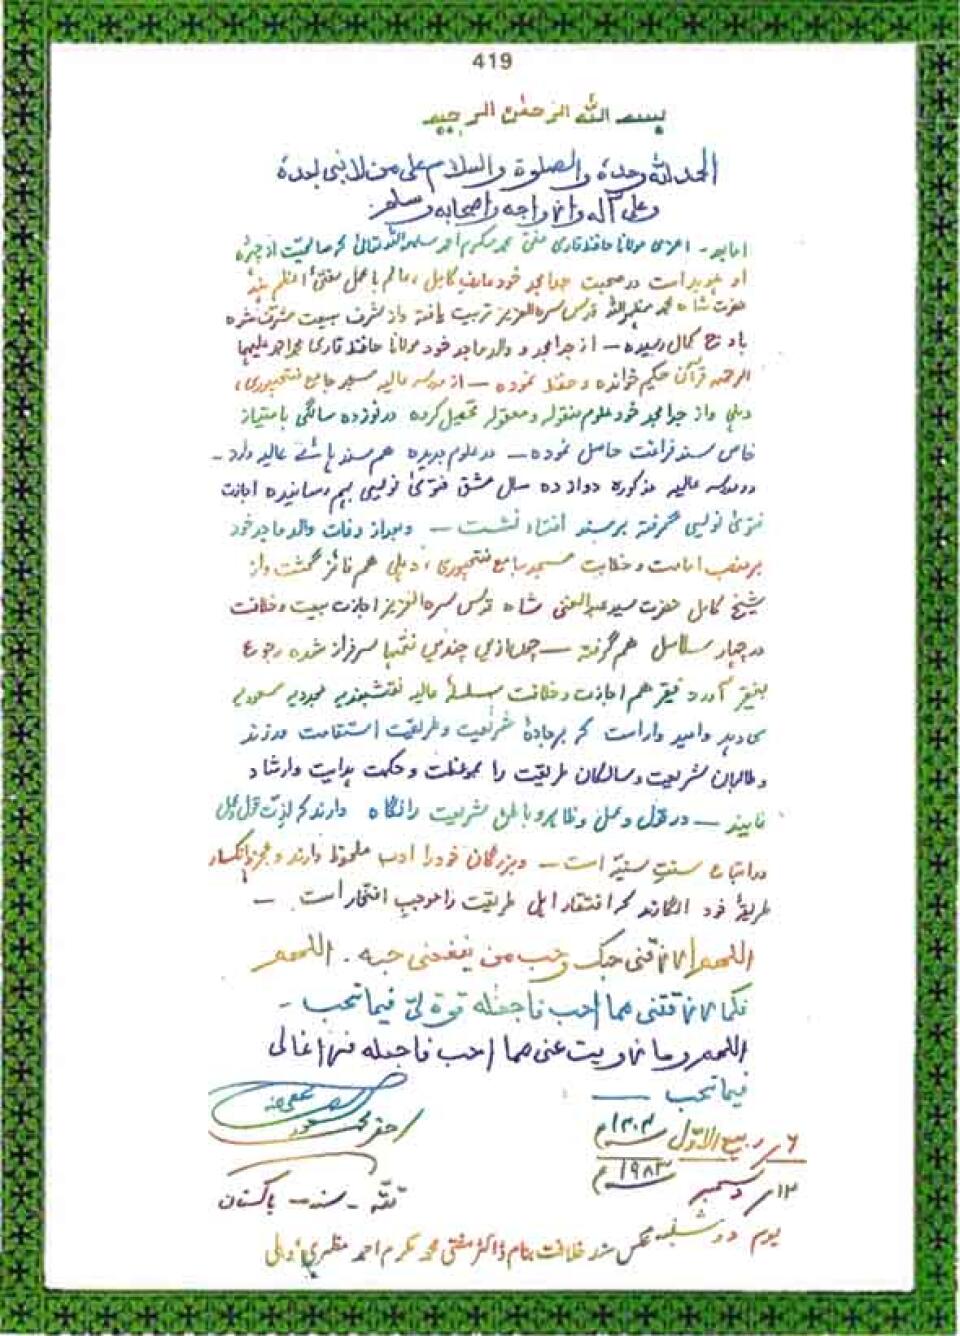 419
بسم الله الرحمٰن الرحیم
الحمد لله وحدہ والصلوٰة والسلام علی من لا نبی بعدہ
وعلی آلہ وازواجہ واصحابہ وسلم۔
امابعد۔ اعزی مولانا حافظ قاری مفتی محمد مکرم احمد سلمہ اللہ تعالیٰ کہ صالحیت از چہرۂ
او ہویدا است در صحبت جد امجد خود عارف کامل، عالم باعمل مفتیٔ اعظم ہند
حضرت شاہ محمد مظہر اللہ قدس سرہ العزیز تربیت یافتہ واز شرف بیعت مشرف شدہ
باوج کمال رسیدہ — از جد امجد و والد ماجد خود مولانا حافظ قاری محمد احمد علیہما
الرحمہ قرآن حکیم خواندہ و حفظ نمودہ — از مدرسہ عالیہ مسجد جامع فتحپوری،
دہلی واز جد امجد خود علوم منقولہ و معقولہ تحصیل کردہ در نوزدہ سالگی بامتیاز
خاص سند فراغت حاصل نمودہ — در علوم جدیدہ ھم سند ہائے عالیہ دارد۔
در مدرسہ عالیہ مذکورہ دوازدہ سال مشق فتویٰ نویسی بہم رسانیدہ اجازت
فتویٰ نویسی گرفتہ بر مسند افتاء نشست — وبعد از وفات والد ماجد خود
بر منصب امامت و خطابت مسجد جامع فتحپوری، دہلی ھم فائز گشت واز
شیخ کامل حضرت سید عبد الغنی شاہ قدس سرہ العزیز اجازت بیعت و خلافت
در چہار سلاسل ھم گرفتہ — چوں ازیں چنیں نعمتہا سرفراز شدہ رجوع
بفقیر آورد فقیر ھم اجازت و خلافت سلسلۂ عالیہ نقشبندیہ مجددیہ مسعودیہ
می دہد و امید وار است کہ بر جادۂ شریعت و طریقت استقامت ورزند
و طالبان شریعت و سالکان طریقت را بموعظت و حکمت ہدایت وارشاد
نمایند — در قول و عمل و ظاہر و باطن شریعت را نگاہ دارند کہ لذت قول و عمل
در اتباع سنت سنیہ است — و بزرگان خود را ادب ملحوظ دارند و عجز و انکسار
طریقۂ خود انگارند کہ افتقار اہل طریقت را موجب افتخار است —
اللهم ارزقنی حبک وحب من ینفعنی حبه. اللهم
فکما رزقتنی مما احب فاجعله قوة لی فیما تحب۔
اللهم وما زویت عنی مما احب فاجعله فراغا لی
فیما تحب —
احقر محمد مسعود احمد عفی عنہ
ٹھٹہ۔ سندھ۔ پاکستان
۶ ربیع الاول ۱۴۰۴ھ
۱۲ دسمبر ۱۹۸۳ء
یوم دوشنبہ
عکس سند خلافت بنام ڈاکٹر مفتی محمد مکرم احمد مظہری دہلی